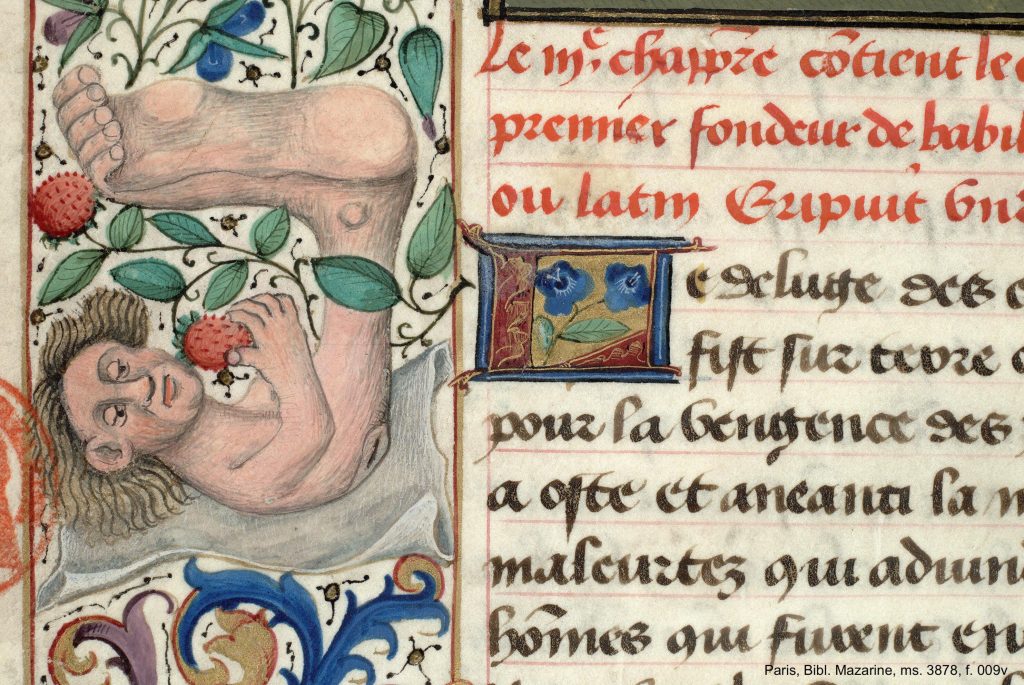 Le iij.e chappr̄e cōtient le
premier fondeur de babil
ou latin Eripuit
Le deluge des
fist sur terre
pour la vengence des
a oste et aneanti la
maleurtez qui
hōmes qui furent en
Paris, Bibl. Mazarine, ms. 3878, f. 009v